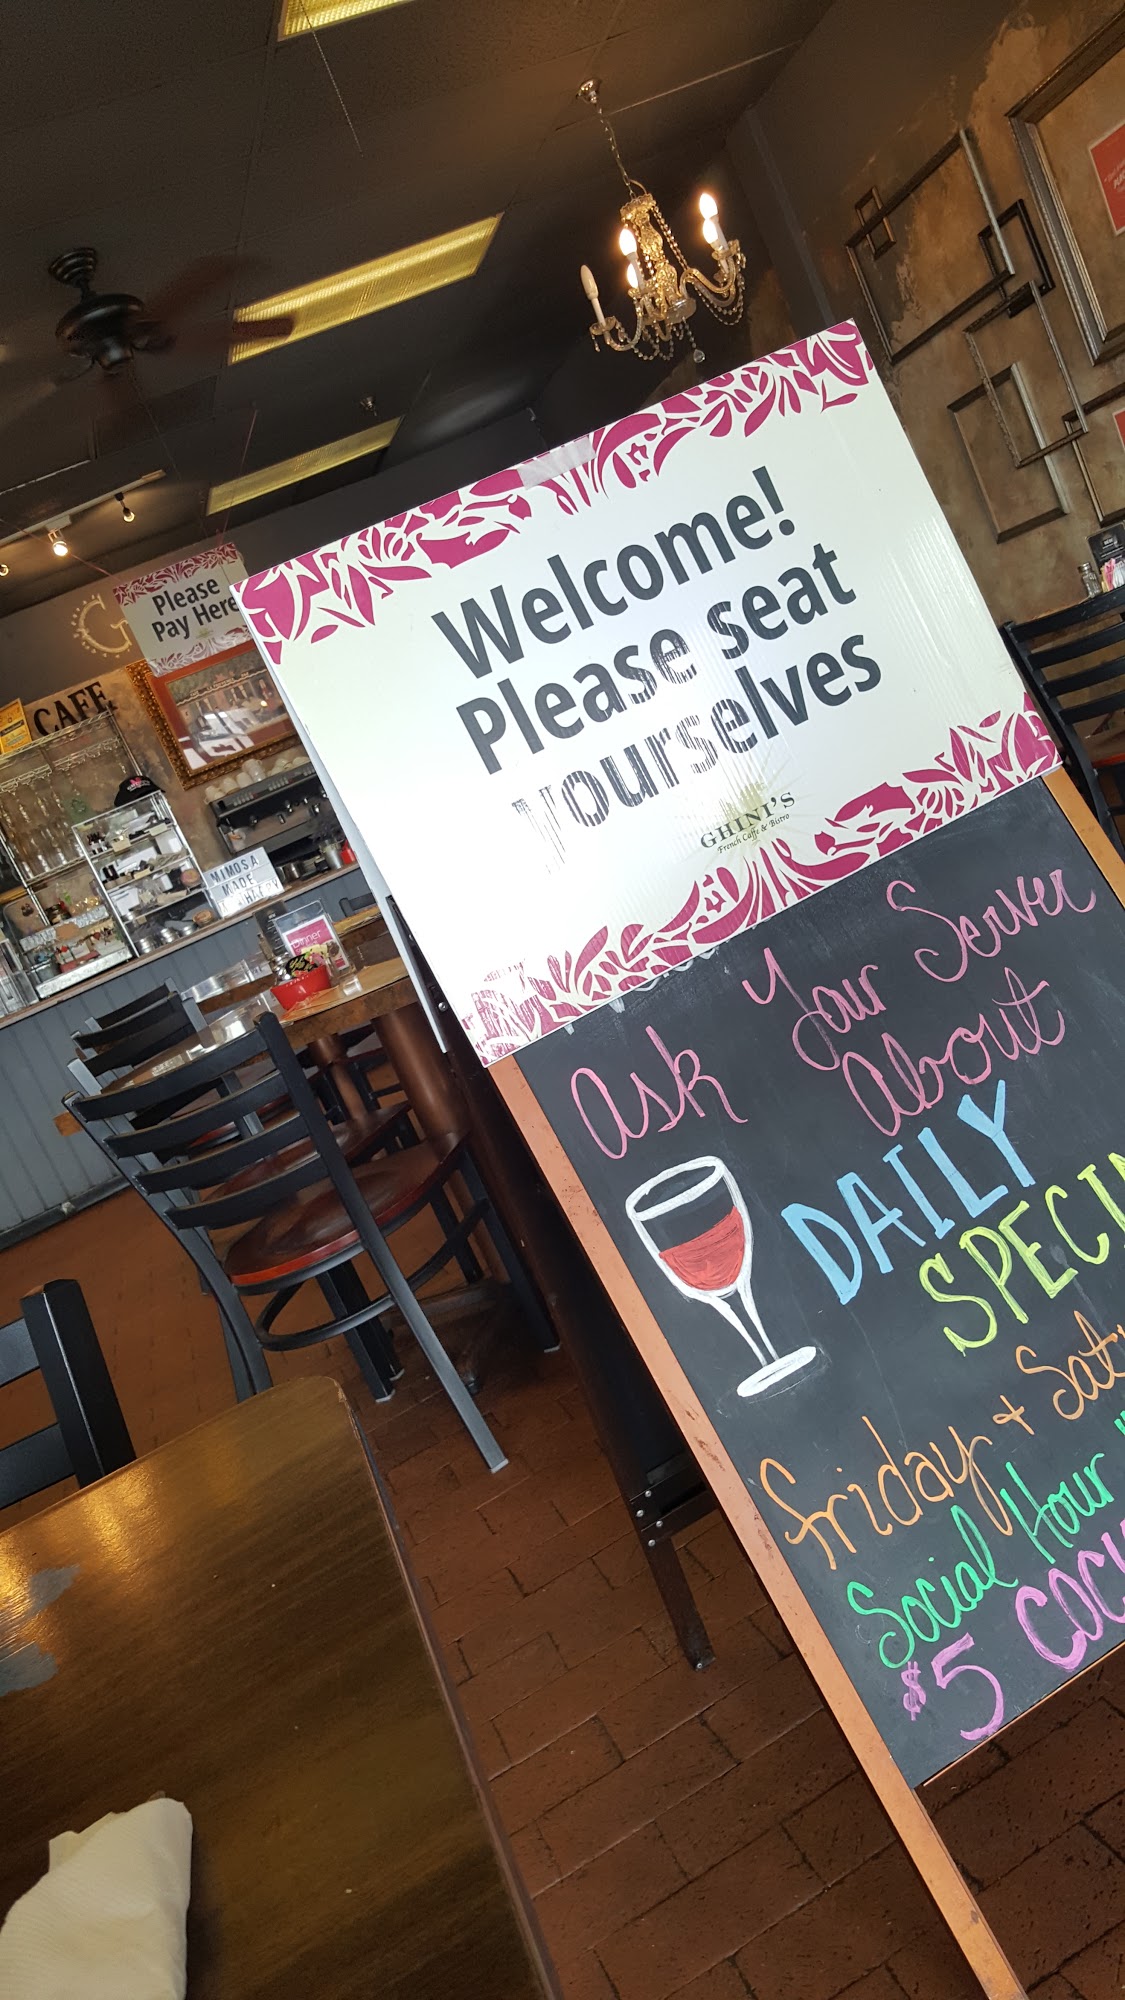 Welcome!
Please seat
yourselves
GHINI'S
French Caffe & Bistro
Ask Your Server
About
DAILY
SPECI
Friday + Sat
Social Hour
$5 COC
Please
Pay Here
G
CAFE
MIMOSA
MADE
Dinner